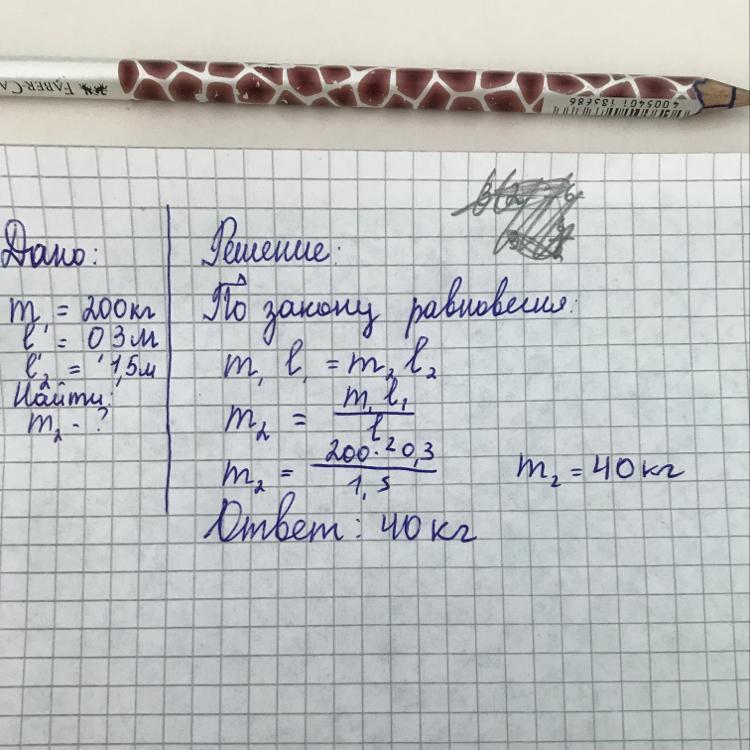 FABER-CA
4005401 185686
Дано:
m₁ = 200кг
l₁ = 0,3м
l₂ = 1,5м
Найти:
m₂ - ?
Решение:
По закону равновесия:
m₁ l₁ = m₂ l₂
m₂ = m₁ l₁ / l₂
m₂ = 200 · 0,3 / 1,5
m₂ = 40кг
Ответ: 40кг